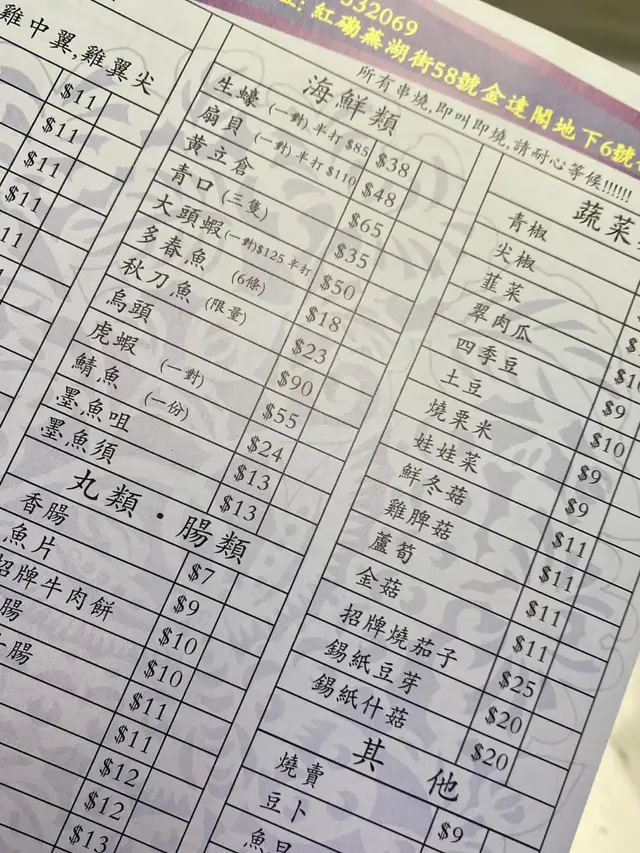 紅磡蕪湖街58號金達閣地下6號
所有串燒,即叫即燒,請耐心等候!!!!!!
雞中翼,雞翼尖
$11
$11
$11
$11
11
海鮮類
生蠔 (一對) 半打 $85 $38
扇貝 (一對) 半打 $110 $48
黃立倉 $65
青口 (三隻) $35
大頭蝦(一對)$125 半打 $50
多春魚 (6條) $18
秋刀魚 (限量) $23
烏頭 $90
虎蝦 (一對) $55
鯖魚 (一份) $24
墨魚咀 $13
墨魚須 $13
丸類·腸類
香腸 $7
魚片 $9
招牌牛肉餅 $10
腸 $10
腸 $11
$11
$12
$12
$13
蔬菜
青椒
尖椒
韮菜
翠肉瓜
四季豆 $9
土豆 $10
燒栗米 $9
娃娃菜 $9
鮮冬菇 $11
雞脾菇 $11
蘆筍 $11
金菇 $11
招牌燒茄子 $25
錫紙豆芽 $20
錫紙什菇 $20
其他
燒賣 $9
豆卜